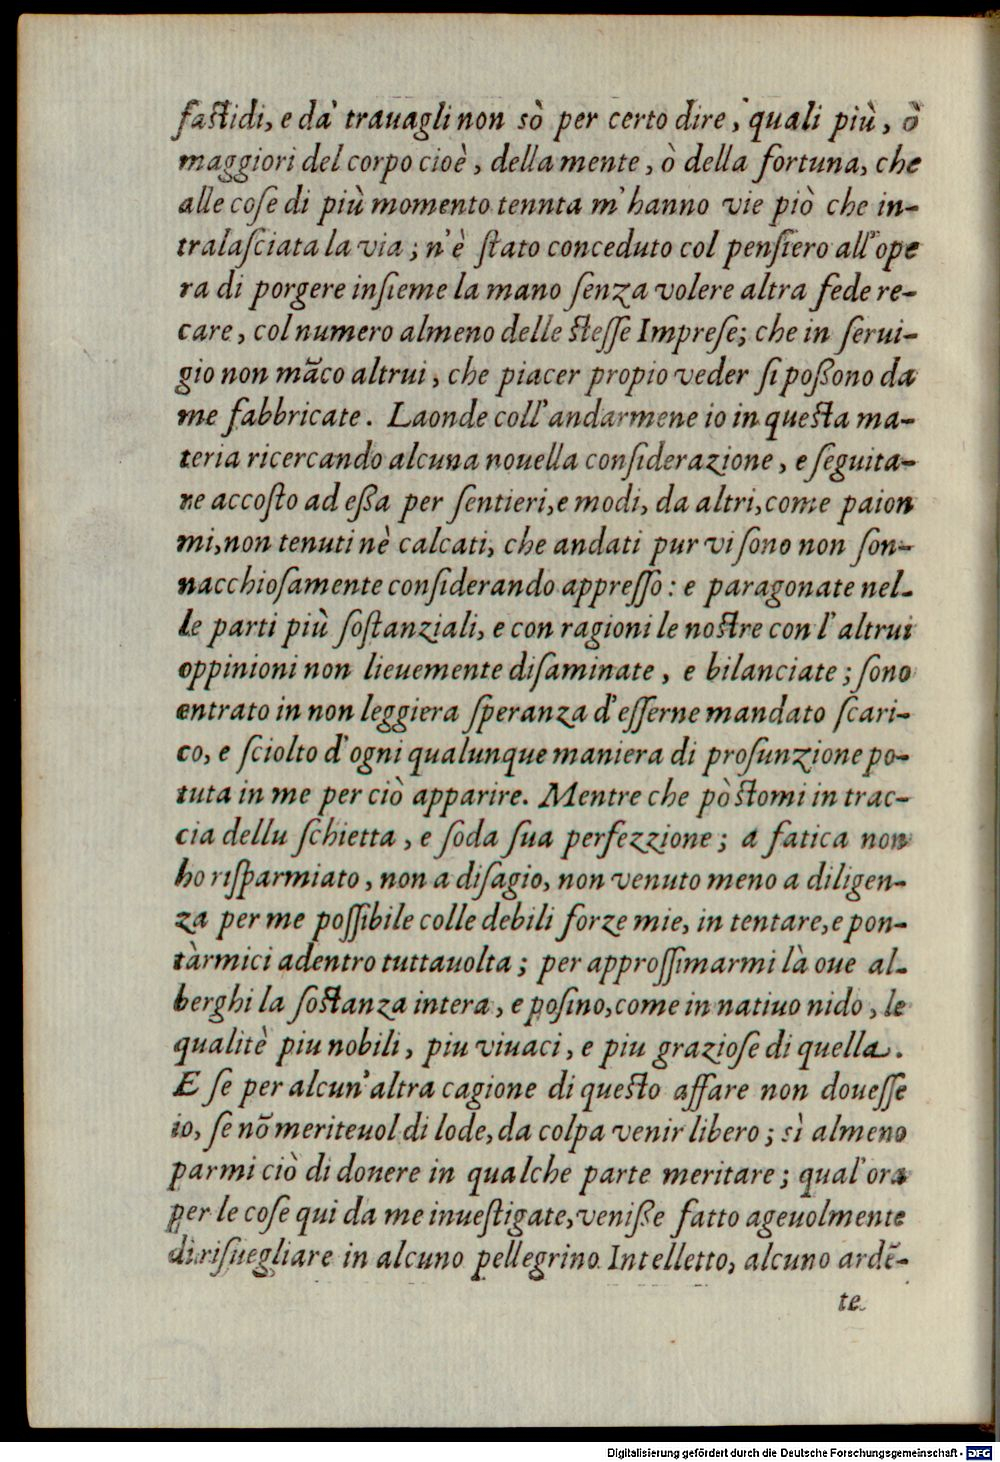 faſtidi, e dà trauagli non sò per certo dire, quali più, ò
maggiori del corpo cioè, della mente, ò della fortuna, che
alle coſe di più momento tennta m'hanno vie piò che in-
tralaſciata la via; n'è ſtato conceduto col penſiero all'ope
ra di porgere inſieme la mano ſenza volere altra fede re-
care, col numero almeno delle ſteſſe Impreſe; che in ſerui-
gio non mãco altrui, che piacer propio veder ſi poßono da
me fabbricate. Laonde coll'andarmene io in queſta ma-
teria ricercando alcuna nouella conſiderazione, e ſeguita-
re accoſto ad eßa per ſentieri, e modi, da altri, come paion
mi, non tenuti nè calcati, che andati pur vi ſono non ſon-
nacchioſamente conſiderando appreſſo: e paragonate nel-
le parti più ſoſtanziali, e con ragioni le noſtre con l'altrui
oppinioni non lieuemente diſaminate, e bilanciate; ſono
entrato in non leggiera ſperanza d'eſſerne mandato ſcari-
co, e ſciolto d'ogni qualunque maniera di proſunzione po-
tuta in me per ciò apparire. Mentre che pòſtomi in trac-
cia dellu ſchietta, e ſoda ſua perfezzione; a fatica non
ho riſparmiato, non a diſagio, non venuto meno a diligen-
za per me poſſibile colle debili forze mie, in tentare, e pon-
tàrmici adentro tuttauolta; per approſſimarmi là oue al-
berghi la ſoſtanza intera, e poſino, come in natiuo nido, le
qualitè piu nobili, piu viuaci, e piu grazioſe di quella.
E ſe per alcun'altra cagione di queſto affare non doueſſe
io, ſe nõ meriteuol di lode, da colpa venir libero; sì almeno
parmi ciò di donere in qualche parte meritare; qual'ora
per le coſe qui da me inueſtigate, veniße fatto ageuolmente
di riſuegliare in alcuno pellegrino Intelletto, alcuno ardẽ-
te
Digitalisierung gefördert durch die Deutsche Forschungsgemeinschaft - DFG